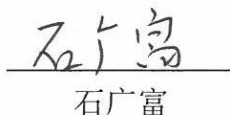 石广富
石广富